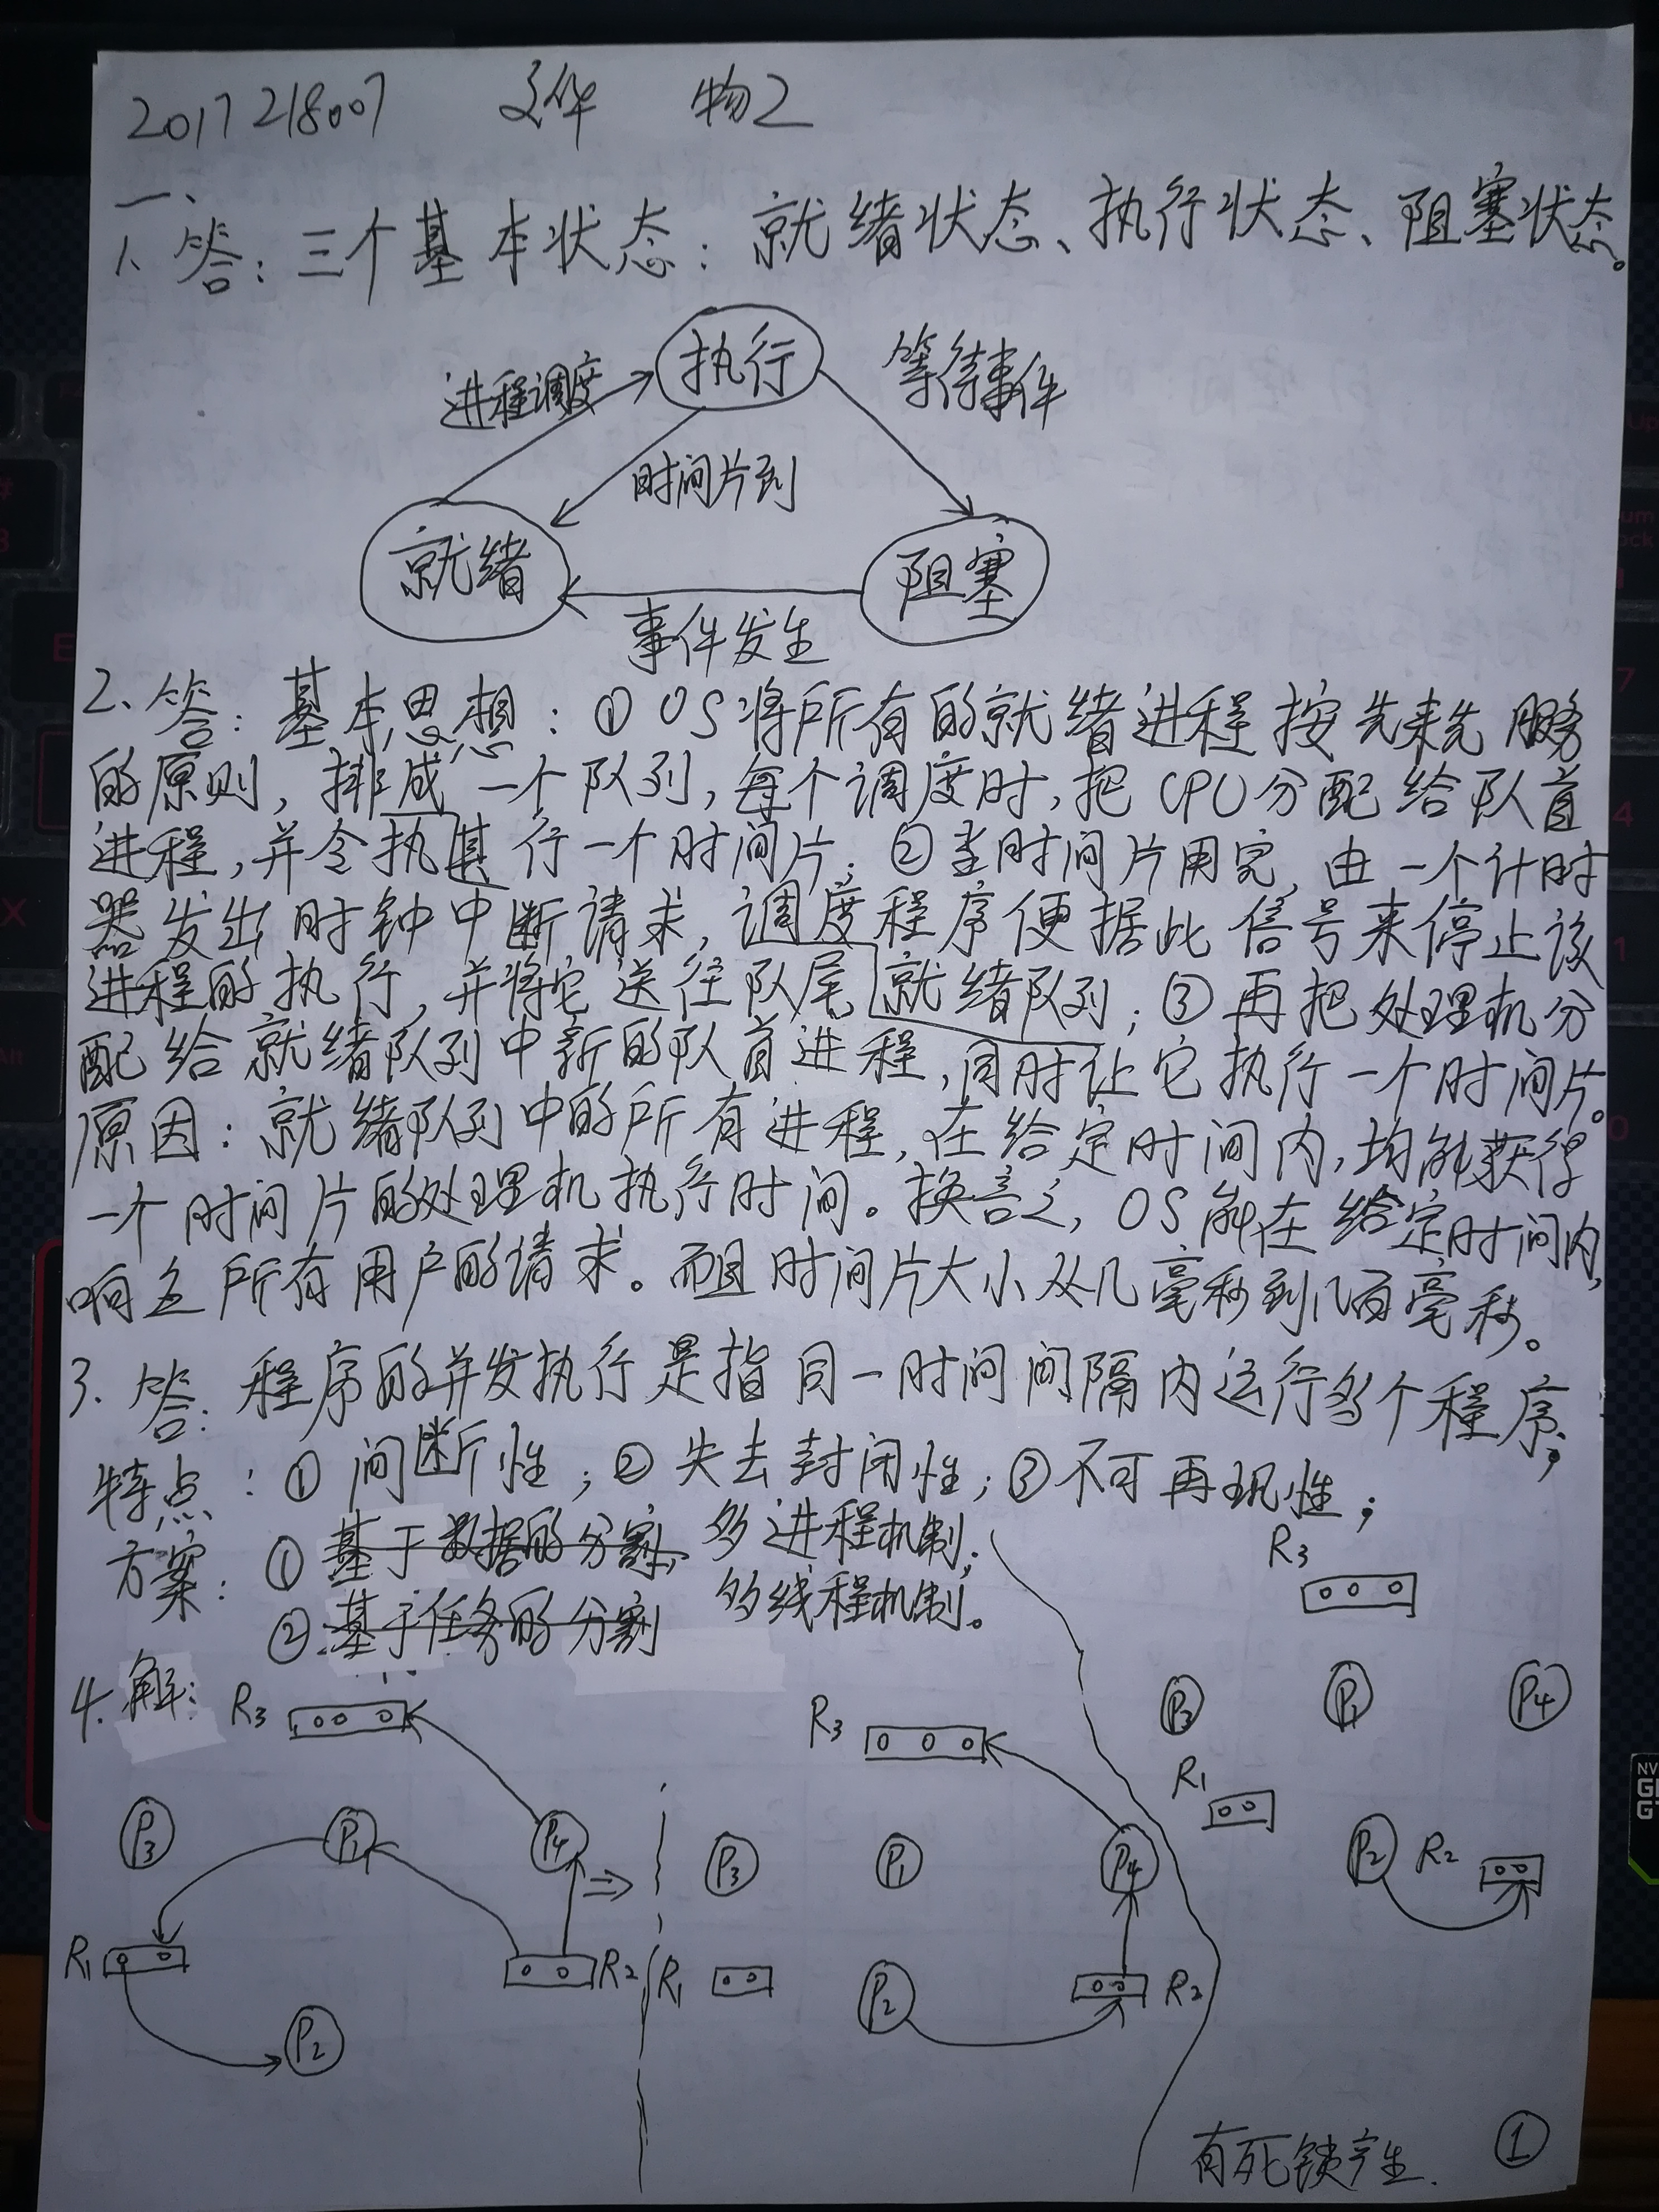 2017218007 文华 物2
一、
1、答：三个基本状态：就绪状态、执行状态、阻塞状态。
执行
进程调度
等待事件
时间片到
就绪
阻塞
事件发生
2、答：基本思想：① OS将所有的就绪进程按先来先服务
的原则，排成一个队列，每个调度时，把CPU分配给队首
进程，并令执其行一个时间片；②当时间片用完，由一个计时
器发出时钟中断请求，调度程序便据此信号来停止该
进程的执行，并将它送往队尾就绪队列；③再把处理机分
配给就绪队列中新的队首进程，同时让它执行一个时间片。
原因：就绪队列中的所有进程，在给定时间内，均能获得
一个时间片的处理机执行时间。换言之，OS能在给定时间内，
响应所有用户的请求。而且时间片大小从几毫秒到几百毫秒。
3、答：程序的并发执行是指同一时间间隔内运行多个程序；
特点：①间断性；②失去封闭性；③不可再现性；
方案：①基于数据的分割、多进程机制；
②基于任务的分割 多线程机制。
4.解：
R3
P3
P1
P4
R1
R2
P2
R3
P3
P1
P4
R1
P2
R2
R3
P3
P1
P4
R1
P2
R2
有死锁产生.
①